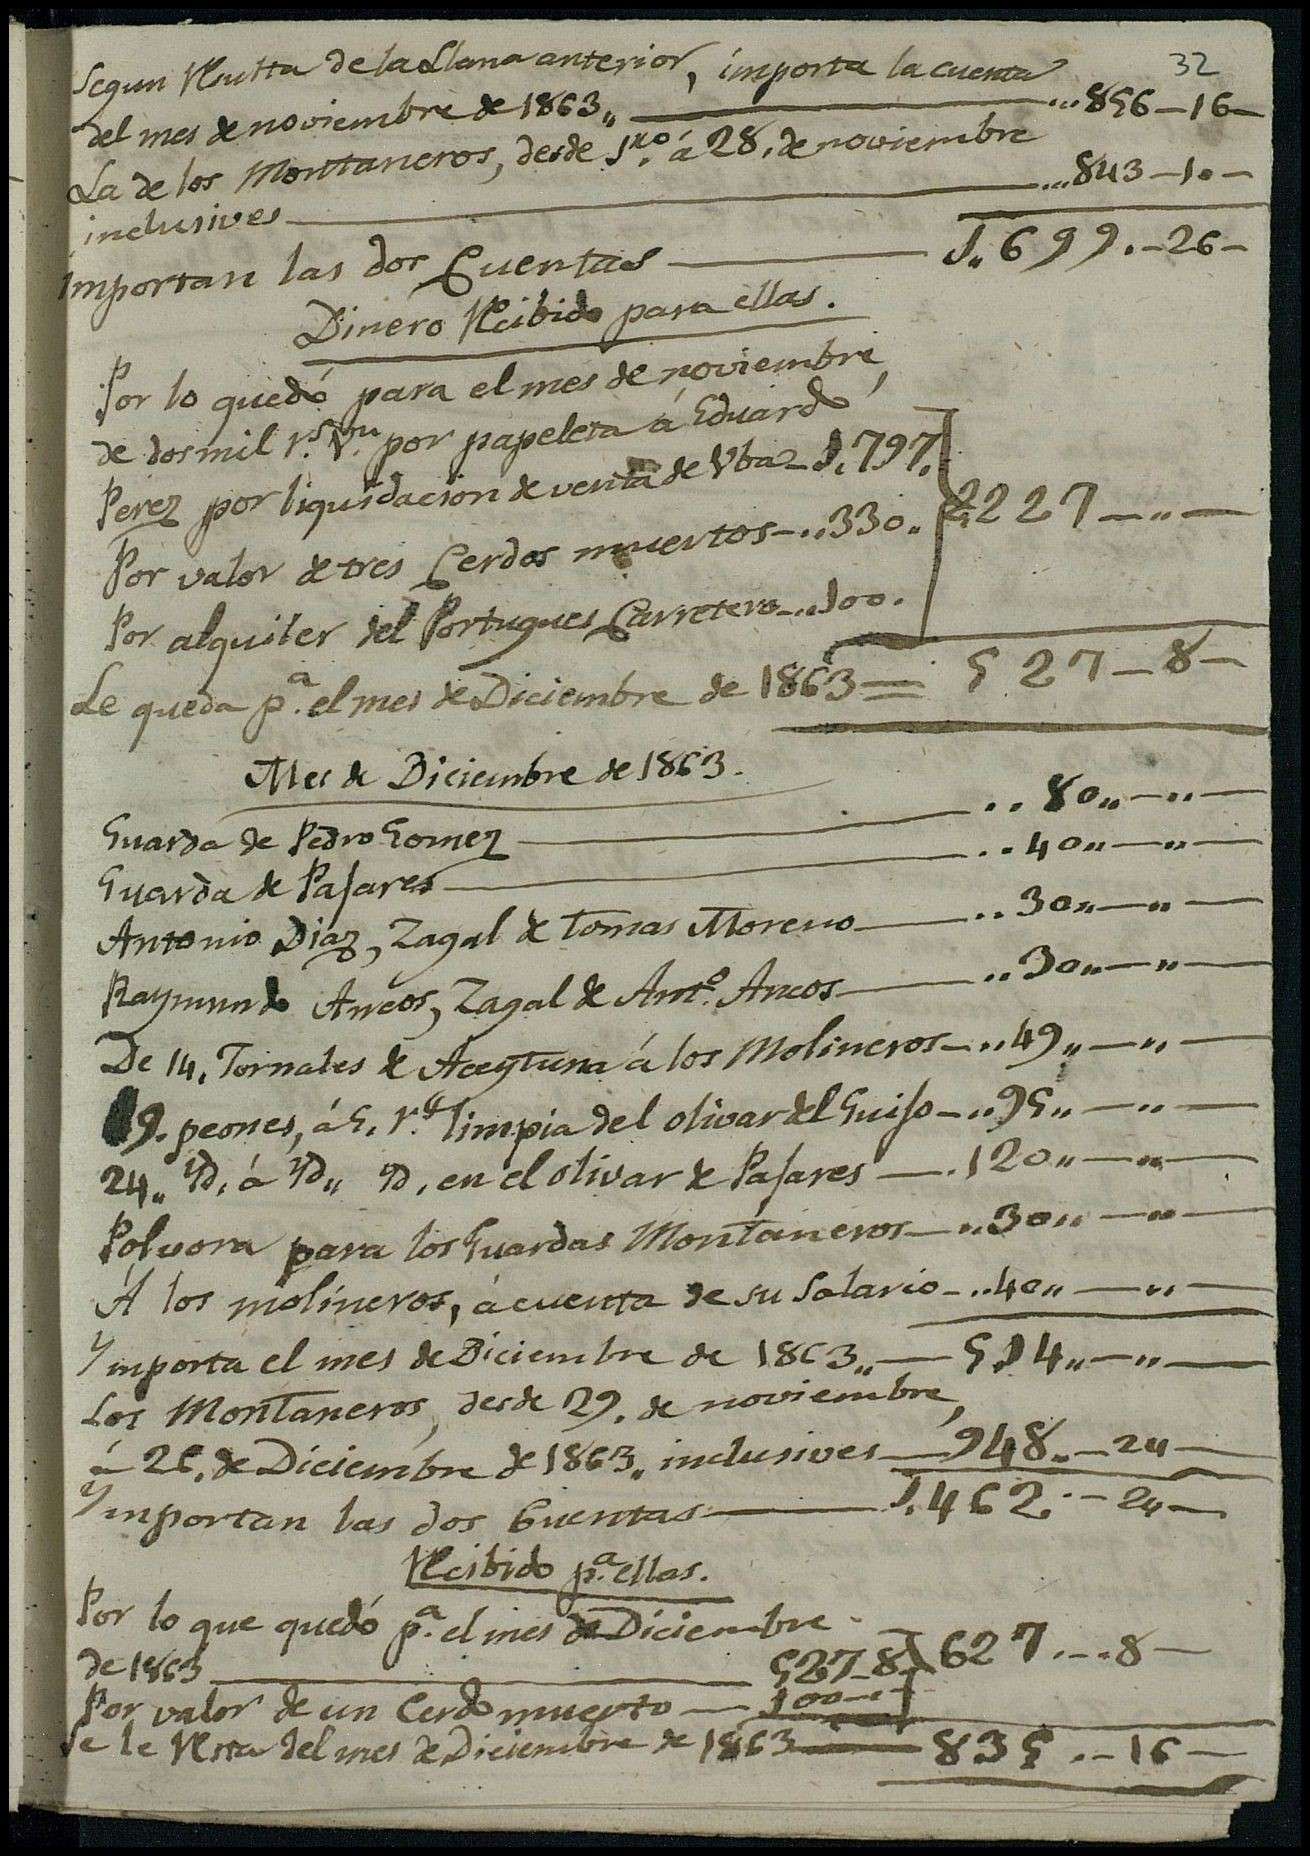 32
Segun Resulta de la Llana anterior, importa la cuenta
del mes de noviembre de 1863„ ... 856 - 16 -
La de los Montaneros, desde 1.ro á 28. de noviembre
inclusives ... 843 - 10 -
Importan las dos Cuentas 1„699. - 26 -
Dinero Recibido para ellas.
Por lo quedó para el mes de noviembre,
de dos mil r.s v.n por papeleta á Eduardo
Perez por liquidacion de venta de Vba - 1.797.
2.227 - „ -
Por valor de tres Cerdos muertos - ..330„
Por alquiler del Portugues Carretero - ..100.
Le queda p.a el mes de Diciembre de 1863 = 527 - 8 -
Mes de Diciembre de 1863.
Guarda de Pedro Gomez .. 80„ - „ -
Guarda de Pajares .. 40„ - „ -
Antonio Diaz, Zagal de tomas Moreno .. 30„ - „ -
Raymundo Ancos, Zagal de Ant.o Ancos .. 30„ - „ -
De 14. Jornales de Aceytuna á los Molineros - .. 49„ - „ -
19. peones, á 5. r.s limpia del olivar del Guijo - .. 95„ - „ -
24„ Yd. á Yd„ Yd. en el olivar de Pajares - . 120„ - „ -
Polvora para los Guardas Montaneros - .. 30„ - „ -
Á los molineros, á cuenta de su Salario - .. 40„ - „ -
Ymporta el mes de Diciembre de 1863„ - 514„ - „ -
Los Montaneros, desde 29. de noviembre,
á 26. de Diciembre de 1863„ inclusives - 948„ - 24 -
Ymportan las dos Cuentas 1.462. - 24 -
Recibido p.a ellas.
Por lo que quedó p.a el mes de Diciembre
de 1863 527 - 8 627 ... 8 -
Por valor de un Cerdo muerto - 100 - „
Se le Resta del mes de Diciembre de 1863 835 .. - 16 -